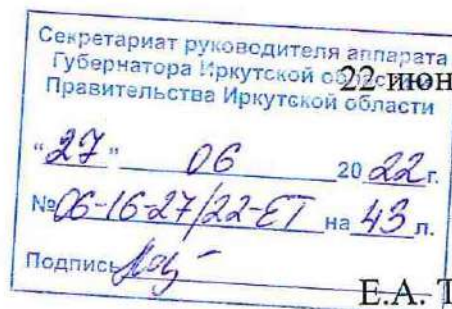 Секретариат руководителя аппарата
Губернатора Иркутской области и
Правительства Иркутской области
22 июн
"27" 06 2022 г.
№ 06-16-27/22-ЕТ на 43 л.
Подпись
Е.А. Т